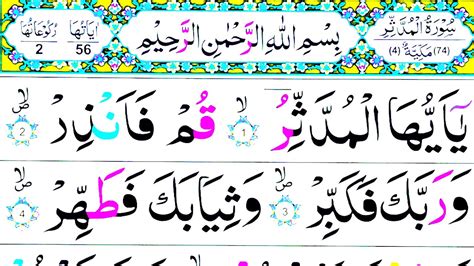 سُوْرَةُ الْمُدَّثِّرِ
(74) مَكِّيَّةٌ (4)
بِسْمِ اللّٰهِ الرَّحْمٰنِ الرَّحِيْمِ
اٰيَاتُهَا 56
رُكُوْعَاتُهَا 2
يٰۤاَيُّهَا الْمُدَّثِّرُ ۙ 1 قُمْ فَاَنْذِرْ ۪ۙ 2
وَرَبَّكَ فَكَبِّرْ ۪ۙ 3 وَثِيَابَكَ فَطَهِّرْ ۪ۙ 4